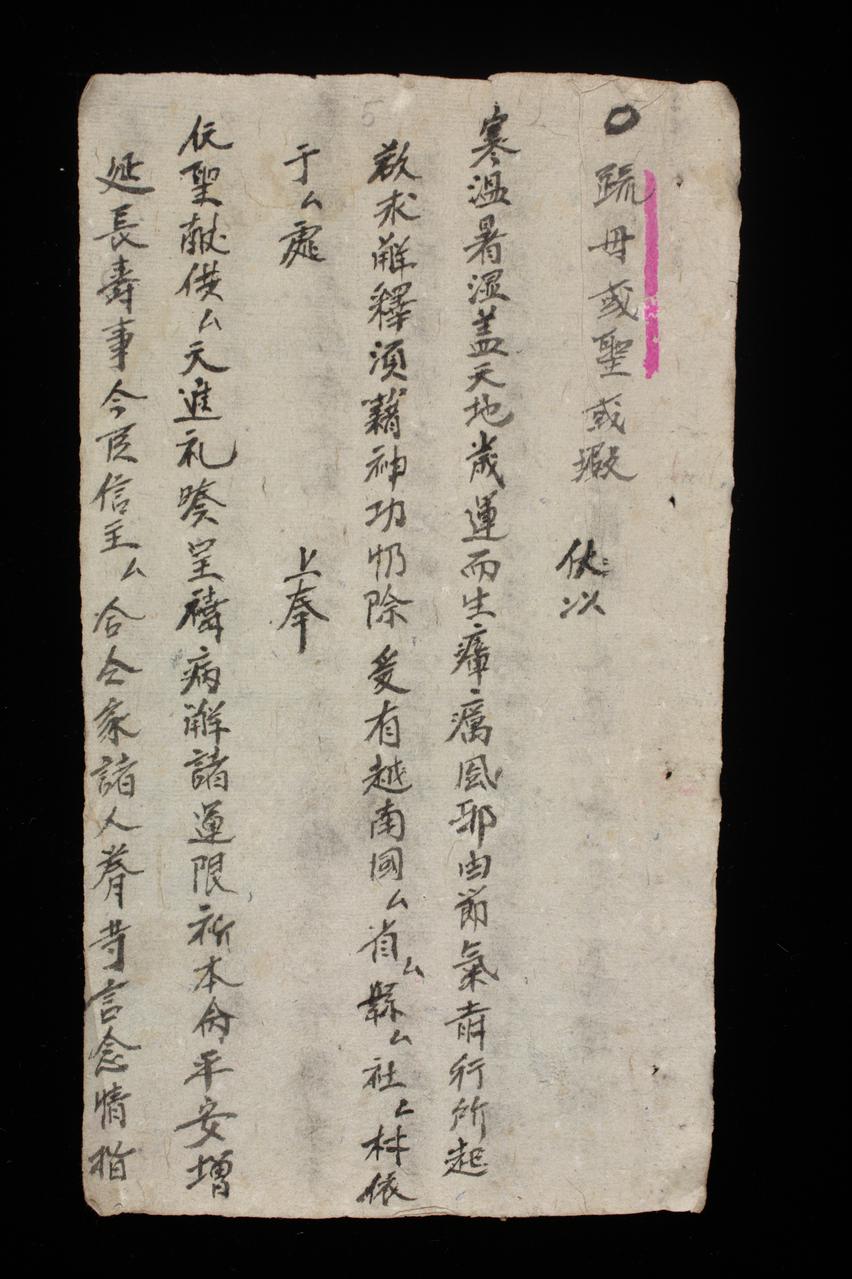 疏母或聖或瘕
伏以
寒溫暑湿盖天地歲運而生瘴癘風耶由節氣㫮行所起
欲求解釋須藉神功仍除爰有越南國厶省厶縣厶社厶村依
于厶處 上奉
仸聖献供厶天進礼暎呈禱病解諸運限祈本命平安增
延長壽事今臣信主厶合仝家諸人等言念情指